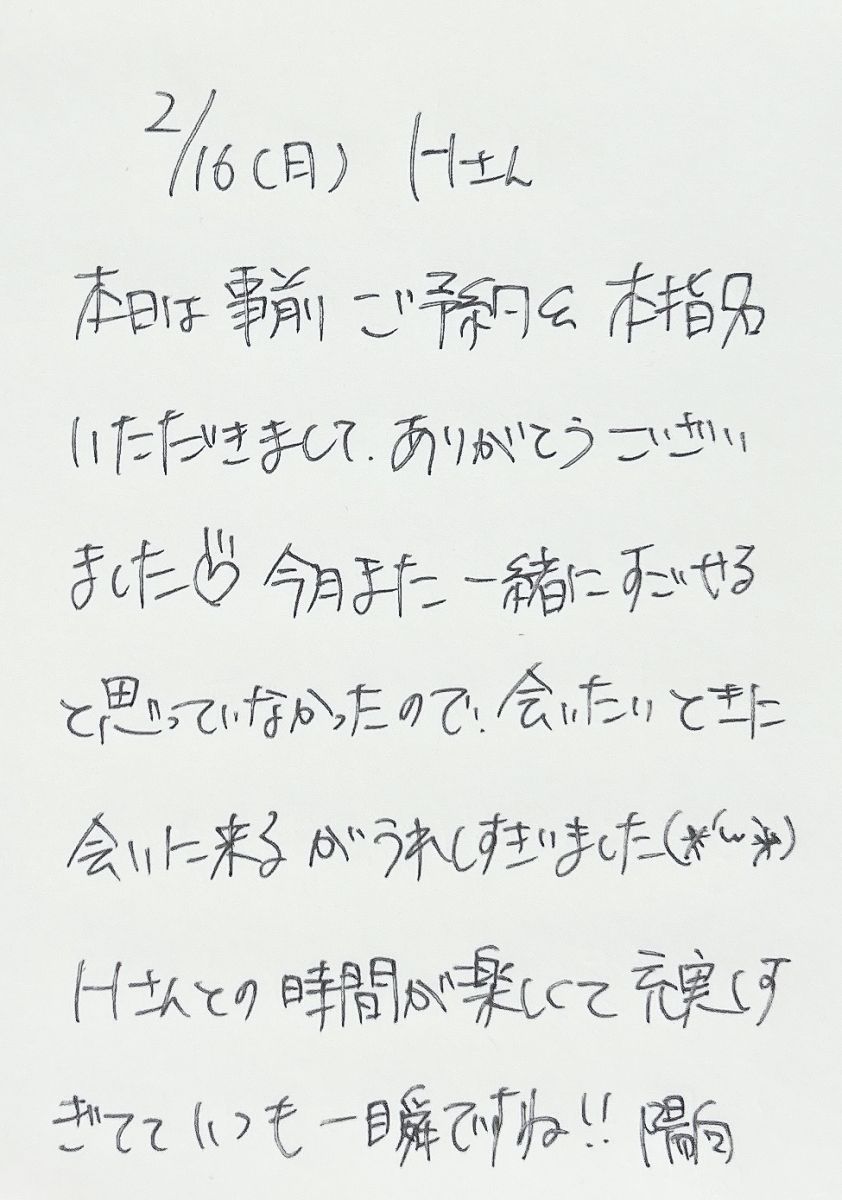 2/16(月) Hさん
本日は事前ご予約&本指名
いただきまして、ありがとうござい
ました 今月また一緒にすごせる
と思っていなかったので、会いたいときに
会いに来るがうれしすぎいました(*´ω`*)
Hさんとの時間が楽しくて充実しす
ぎてていつも一瞬ですね!! 陽向